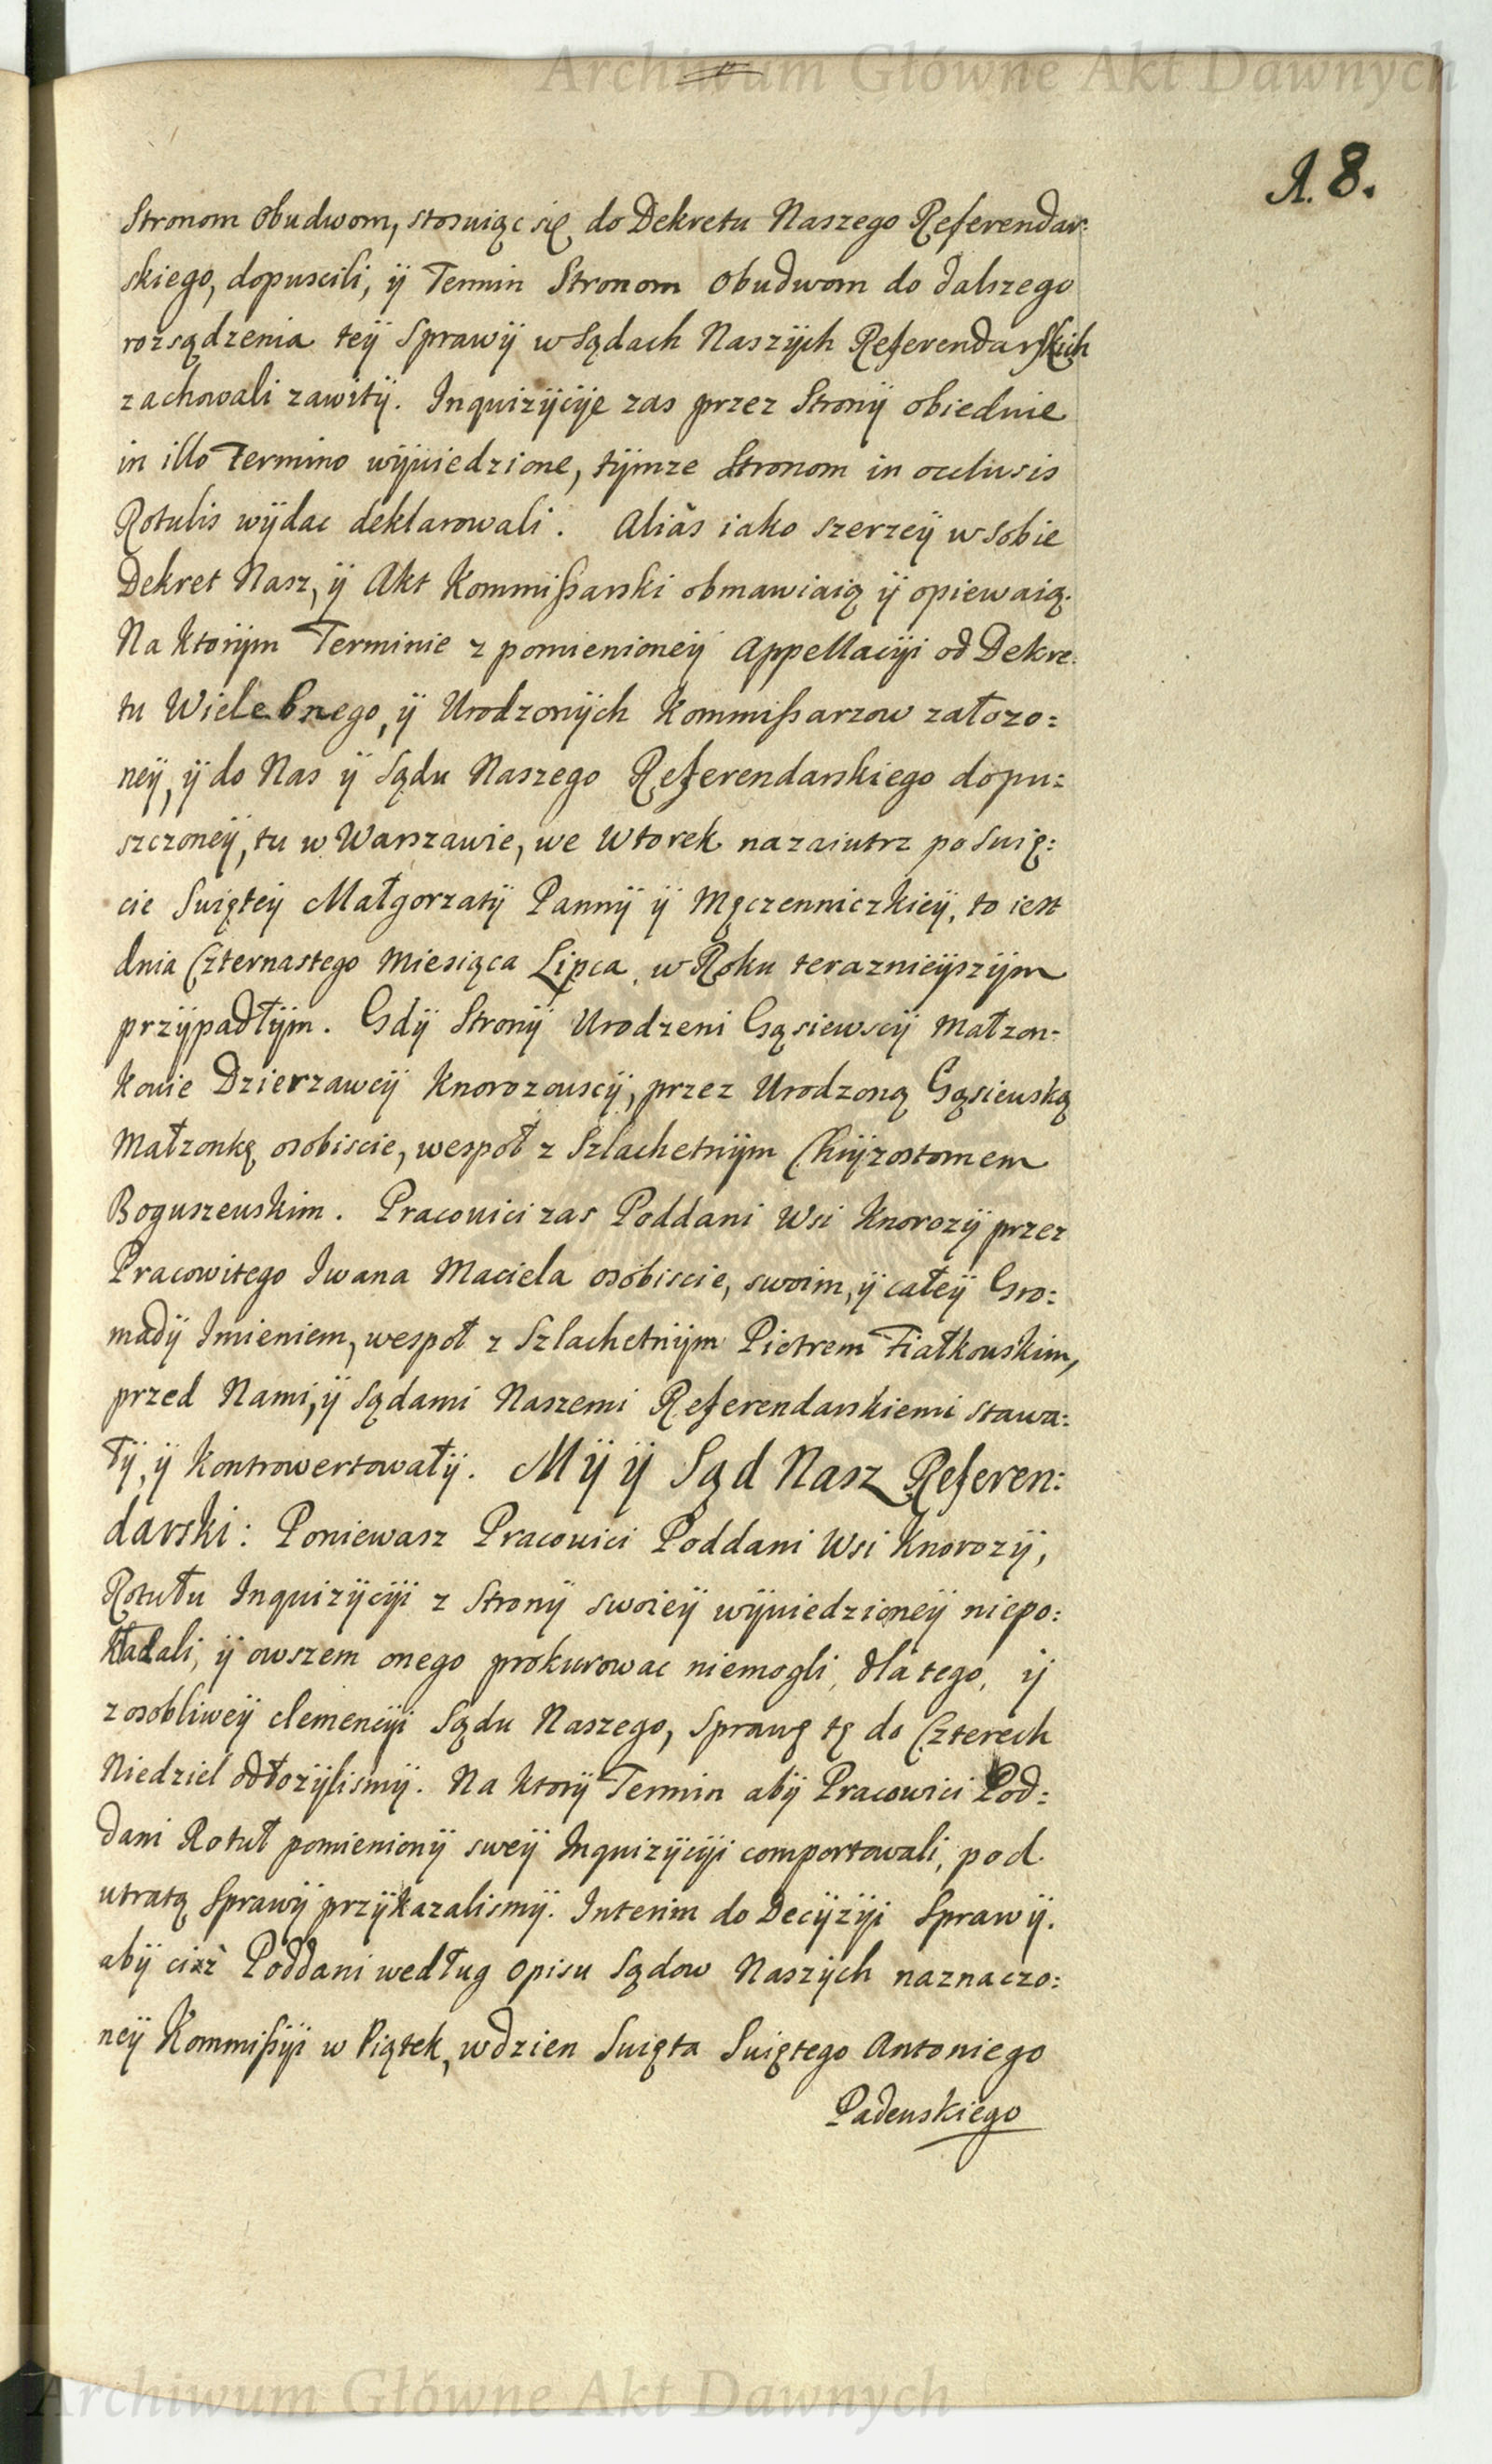 Archiwum Główne Akt Dawnych
A. 8.
Stronom obudwom, stosuiąc się do Dekretu Naszego Referendar:
skiego, dopuscili, ÿ Termin Stronom obudwom do dalszego
rozsądzenia teÿ Sprawÿ w Sądach Naszÿch Referendarskich
zachowali zawitÿ. Inquizÿcÿe zas przez Stronÿ obiednie
in illo Termino wÿwiedzione, tÿmze Stronom in occlusis
Rotulis wÿdac deklarowali. Aliàs iako szerzeÿ w sobie
Dekret Nasz, ÿ Akt Kommißarski obmawiaią ÿ opiewaią.
Na ktorÿm Terminie z pomienioneÿ Appellacÿi od Dekre:
tu Wielebnego, ÿ Urodzonÿch Kommißarzow załozo:
neÿ, ÿ do Nas ÿ Sądu Naszego Referendarskiego dopu:
szczoneÿ, tu w Warszawie, we Wtorek nazaiutrz po Swię:
cie Swięteÿ Małgorzatÿ Pannÿ ÿ Męczenniczkieÿ, to iest
dnia Czternastego Miesiąca Lipca, w Roku teraznieÿszÿm
przÿpadłÿm. Gdÿ Stronÿ Urodzeni Gąsiewscÿ Małzon:
kowie Dzierzawcÿ Knorozowscÿ, przez Urodzoną Gąsiewską
Małzonkę osobiscie, wespoł z Szlachetnÿm Chrÿzostomem
Boguszewskim. Pracowici zas Poddani Wsi Knorozÿ przez
Pracowitego Iwana Maciela osobiscie, swoim, ÿ całeÿ Gro:
madÿ Imieniem, wespoł z Szlachetnÿm Piotrem Fiałkowskim,
przed Nami, ÿ Sądami Naszemi Referendarskiemi stawa:
łÿ, ÿ kontrowertowałÿ. Mÿ ÿ Sąd Nasz Referen:
darski: Poniewasz Pracowici Poddani Wsi Knorozÿ,
Rotułu Inquizÿcÿi z Stronÿ swoieÿ wÿwiedzioneÿ niepo:
kładali, ÿ owszem onego prokurowac niemogli, dla tego, ÿ
z osobliweÿ clemencÿi Sądu Naszego, Sprawę tę do Czterech
Niedziel odłozÿlismÿ. Na ktorÿ Termin abÿ Pracowici Pod:
dani Rotuł pomienionÿ sweÿ Inquizÿcÿi comportowali, pod
utratą Sprawÿ przÿkazalismÿ. Interim do Decÿzÿi Sprawÿ.
abÿ ciż Poddani według opisu Sądow Naszÿch naznaczo:
neÿ Kommißÿi w Piątek, w dzien Swięta Swiętego Antoniego
Padewskiego
Archiwum Główne Akt Dawnych